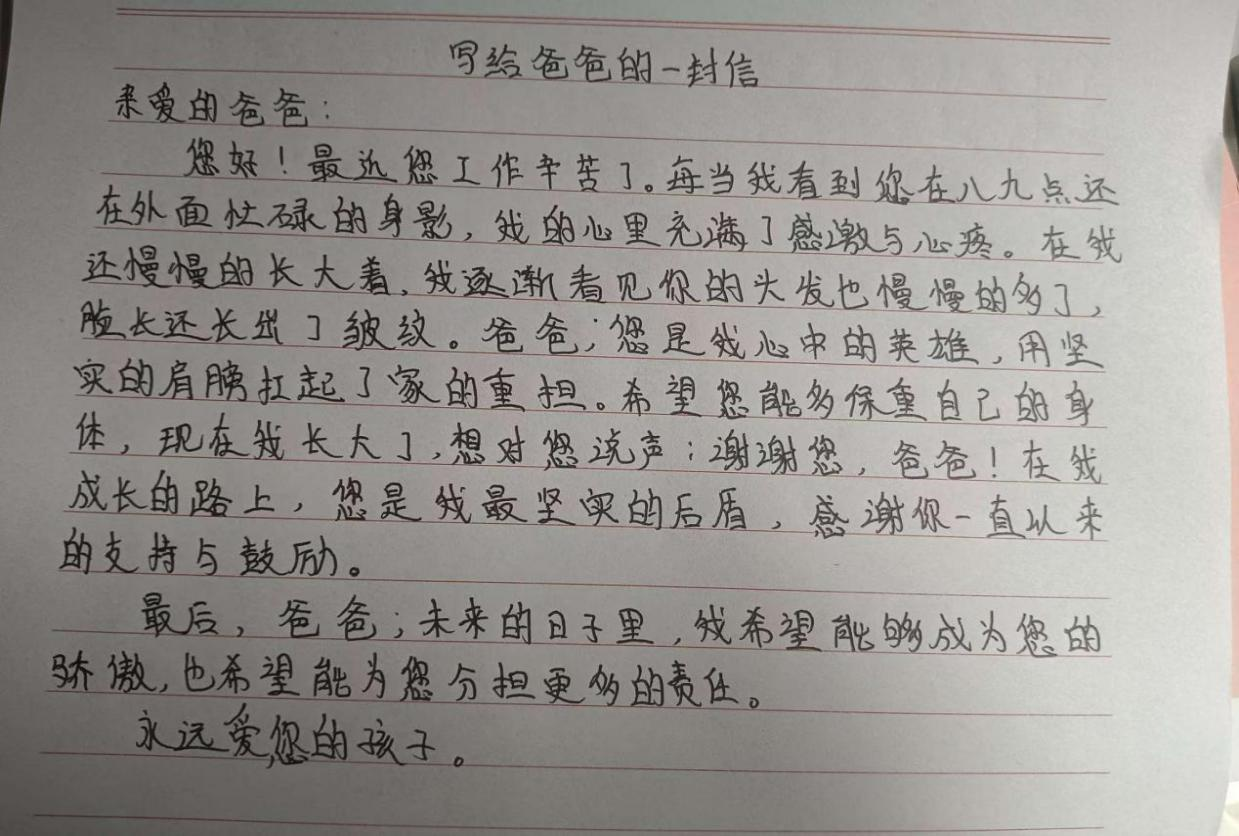 写给爸爸的一封信
亲爱的爸爸：
您好！最近您工作辛苦了。每当我看到您在八九点还
在外面忙碌的身影，我的心里充满了感激与心疼。在我
还慢慢的长大着，我逐渐看见你的头发也慢慢的多了，
脸长还长出了皱纹。爸爸；您是我心中的英雄，用坚
实的肩膀扛起了家的重担。希望您能多保重自己的身
体，现在我长大了，想对您说声：谢谢您，爸爸！在我
成长的路上，您是我最坚实的后盾，感谢你一直以来
的支持与鼓励。
最后，爸爸；未来的日子里，我希望能够成为您的
骄傲，也希望能为您分担更多的责任。
永远爱您的孩子。